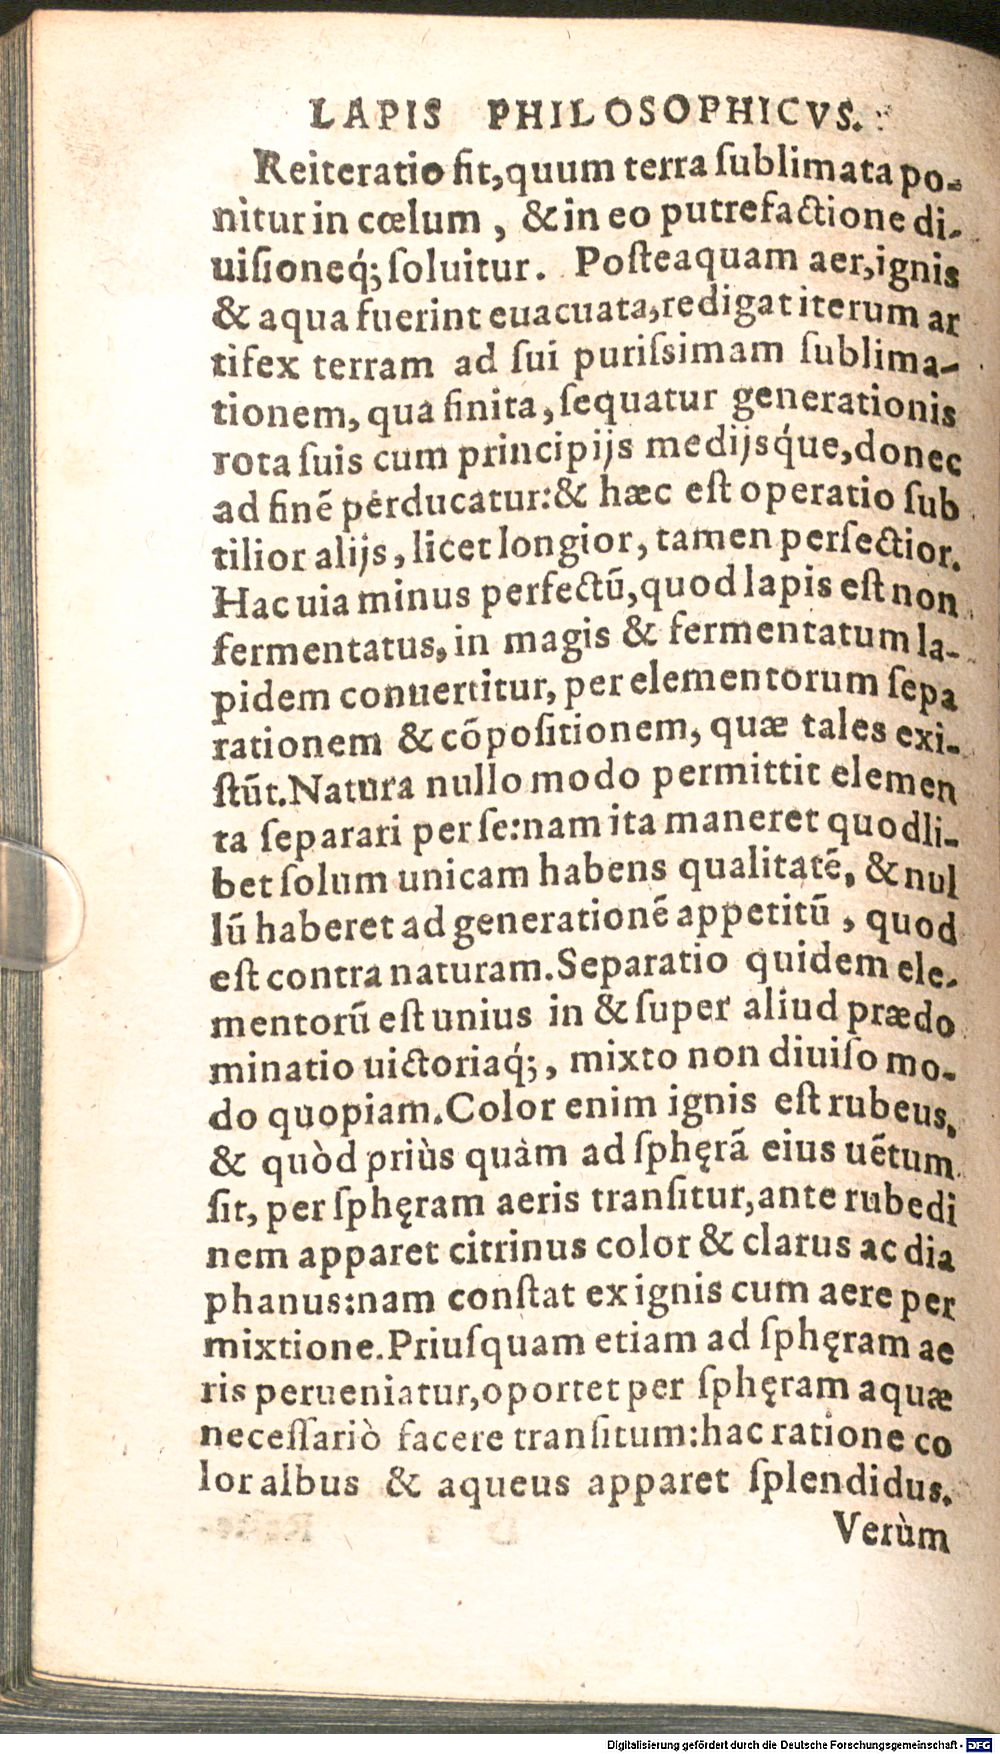 LAPIS PHILOSOPHICVS.
Reiteratio fit, quum terra ſublimata po-
nitur in cœlum, & in eo putrefactione di-
uiſioneq́; ſoluitur. Poſteaquam aer, ignis
& aqua fuerint euacuata, redigat iterum ar
tifex terram ad ſui puriſsimam ſublima-
tionem, qua finita, ſequatur generationis
rota ſuis cum principijs medijsq́ue, donec
ad finē perducatur: & hæc eſt operatio ſub
tilior alijs, licet longior, tamen perfectior.
Hac uia minus perfectũ, quod lapis eſt non
fermentatus, in magis & fermentatum la-
pidem conuertitur, per elementorum ſepa
rationem & cõpoſitionem, quæ tales exi-
ſtũt. Natura nullo modo permittit elemen
ta ſeparari per ſe: nam ita maneret quodli-
bet ſolum unicam habens qualitatē, & nul
lũ haberet ad generationē appetitũ, quod
eſt contra naturam. Separatio quidem ele-
mentorũ eſt unius in & ſuper aliud prædo
minatio uictoriaq́;, mixto non diuiſo mo-
do quopiam. Color enim ignis eſt rubeus,
& quòd priùs quàm ad ſphęrã eius uẽtum
ſit, per ſphęram aeris tranſitur, ante rubedi
nem apparet citrinus color & clarus ac dia
phanus: nam conſtat ex ignis cum aere per
mixtione. Priuſquam etiam ad ſphęram ae
ris perueniatur, oportet per ſphęram aquæ
neceſſariò facere tranſitum: hac ratione co
lor albus & aqueus apparet ſplendidus.
Verùm
Digitalisierung gefördert durch die Deutsche Forschungsgemeinschaft - DFG